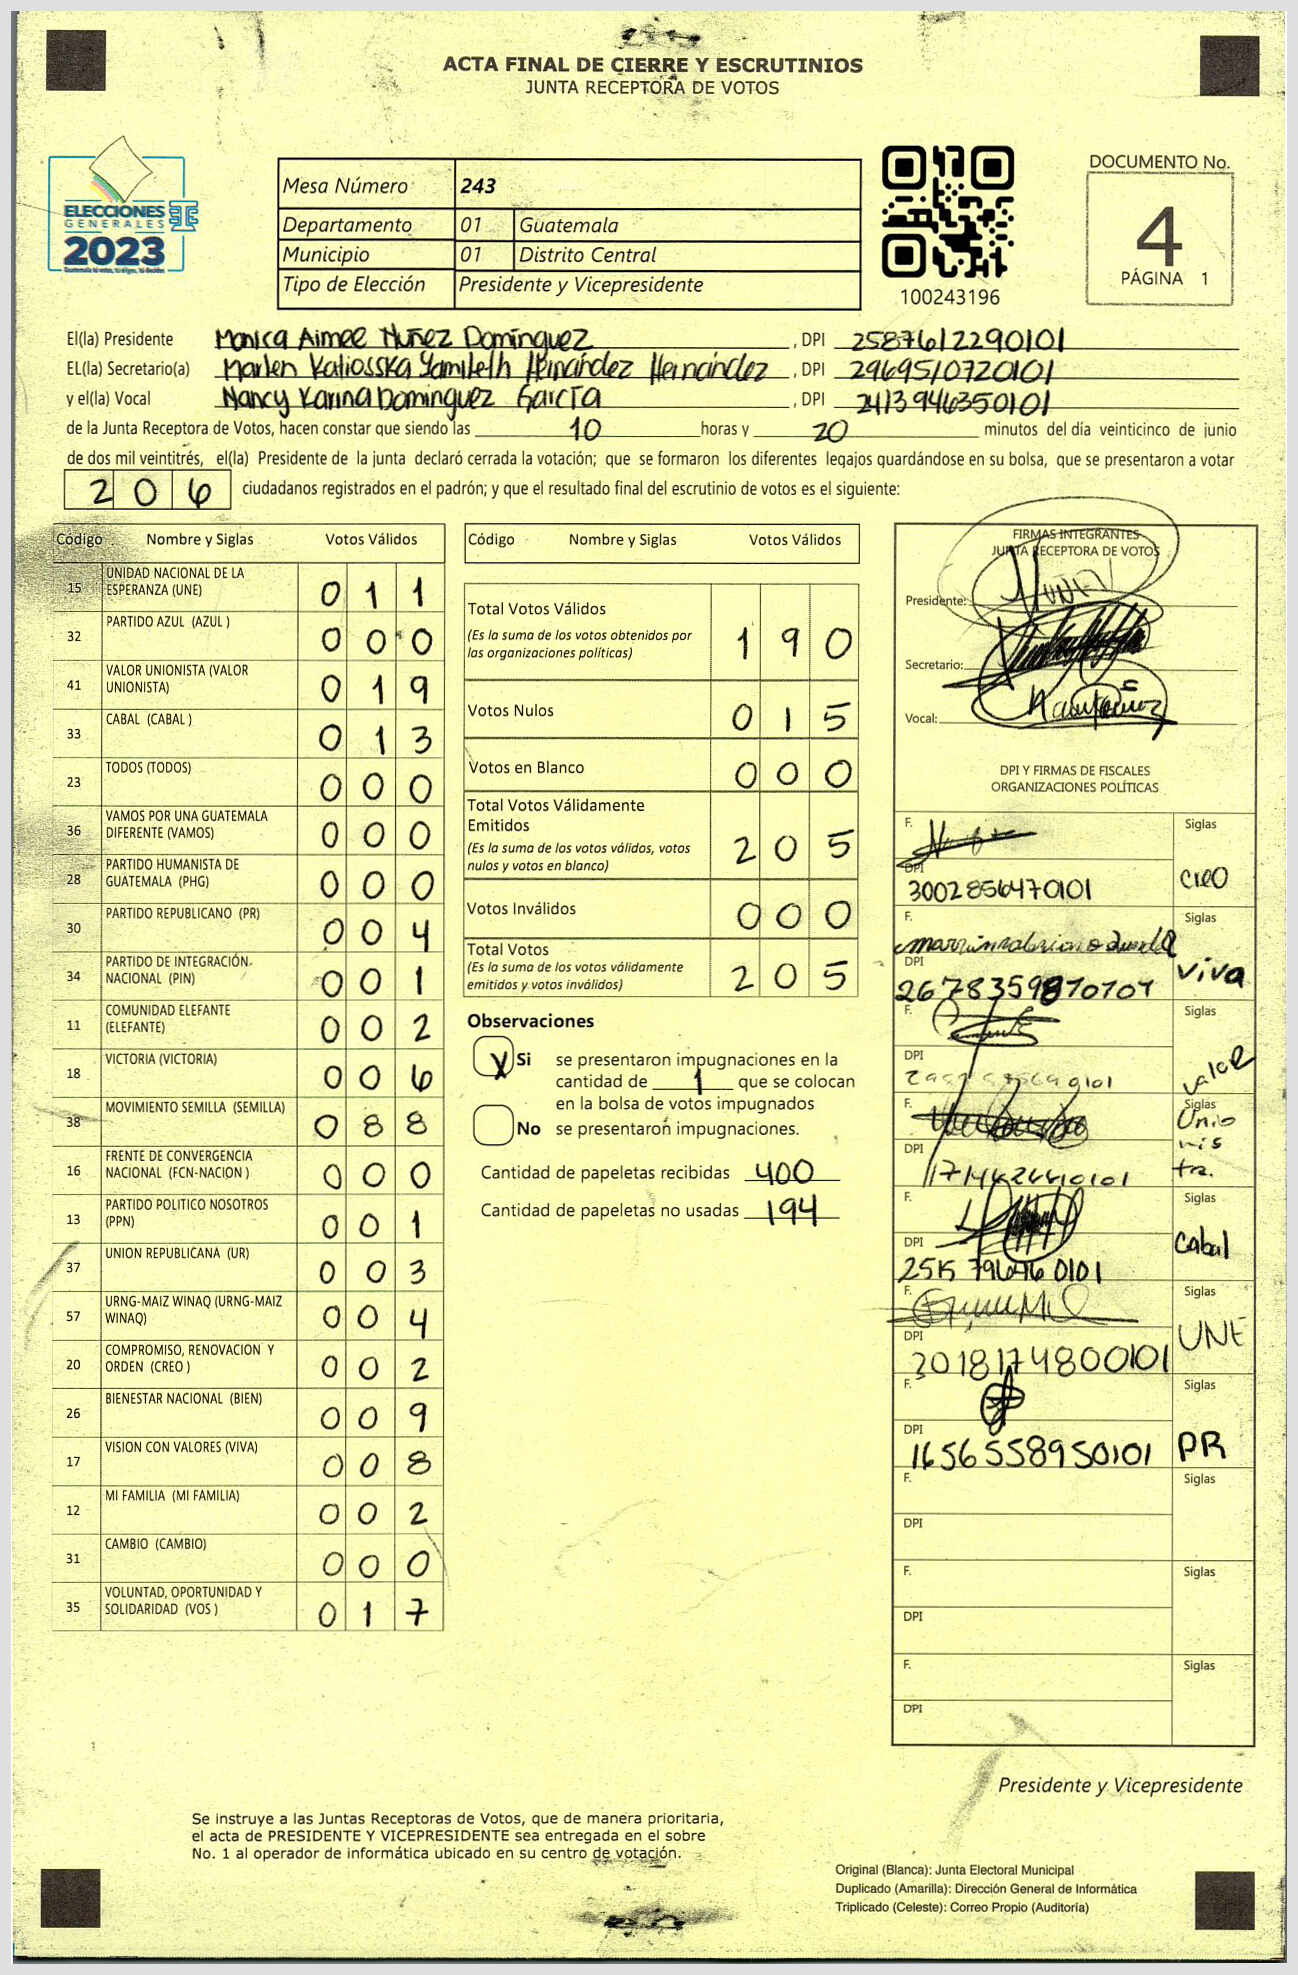 ACTA FINAL DE CIERRE Y ESCRUTINIOS
JUNTA RECEPTORA DE VOTOS
ELECCIONES
GENERALES
2023
Mesa Número 243
Departamento 01 Guatemala
Municipio 01 Distrito Central
Tipo de Elección Presidente y Vicepresidente
100243196
DOCUMENTO No.
4
PÁGINA 1
El(la) Presidente Monica Aimee Nuñez Domínguez, DPI 2587612290101
EL(la) Secretario(a) Marlen Kaliosska Yamileth Hernández Hernández, DPI 2969510720101
y el(la) Vocal Nancy Karina Dominguez García, DPI 2413946350101
de la Junta Receptora de Votos, hacen constar que siendo las 10 horas y 20 minutos del día veinticinco de junio
de dos mil veintitrés, el(la) Presidente de la junta declaró cerrada la votación; que se formaron los diferentes legajos guardándose en su bolsa, que se presentaron a votar
206 ciudadanos registrados en el padrón; y que el resultado final del escrutinio de votos es el siguiente:
Código Nombre y Siglas Votos Válidos
15 UNIDAD NACIONAL DE LA ESPERANZA (UNE) 011
32 PARTIDO AZUL (AZUL ) 000
41 VALOR UNIONISTA (VALOR UNIONISTA) 019
33 CABAL (CABAL ) 013
23 TODOS (TODOS) 000
36 VAMOS POR UNA GUATEMALA DIFERENTE (VAMOS) 000
28 PARTIDO HUMANISTA DE GUATEMALA (PHG) 000
30 PARTIDO REPUBLICANO (PR) 004
34 PARTIDO DE INTEGRACIÓN NACIONAL (PIN) 001
11 COMUNIDAD ELEFANTE (ELEFANTE) 002
18 VICTORIA (VICTORIA) 006
38 MOVIMIENTO SEMILLA (SEMILLA) 088
16 FRENTE DE CONVERGENCIA NACIONAL (FCN-NACION ) 000
13 PARTIDO POLITICO NOSOTROS (PPN) 001
37 UNION REPUBLICANA (UR) 003
57 URNG-MAIZ WINAQ (URNG-MAIZ WINAQ) 004
20 COMPROMISO, RENOVACION Y ORDEN (CREO ) 002
26 BIENESTAR NACIONAL (BIEN) 009
17 VISION CON VALORES (VIVA) 008
12 MI FAMILIA (MI FAMILIA) 002
31 CAMBIO (CAMBIO) 000
35 VOLUNTAD, OPORTUNIDAD Y SOLIDARIDAD (VOS ) 017
Código Nombre y Siglas Votos Válidos
Total Votos Válidos 190
(Es la suma de los votos obtenidos por
las organizaciones políticas)
Votos Nulos 015
Votos en Blanco 000
Total Votos Válidamente
Emitidos 205
(Es la suma de los votos válidos, votos
nulos y votos en blanco)
Votos Inválidos 000
Total Votos 205
(Es la suma de los votos válidamente
emitidos y votos inválidos)
Observaciones
X Si se presentaron impugnaciones en la
cantidad de 1 que se colocan
en la bolsa de votos impugnados
No se presentaron impugnaciones.
Cantidad de papeletas recibidas 400
Cantidad de papeletas no usadas 194
FIRMAS INTEGRANTES
JUNTA RECEPTORA DE VOTOS
Presidente:
Secretario:
Vocal:
DPI Y FIRMAS DE FISCALES
ORGANIZACIONES POLÍTICAS
F. Siglas
DPI 3002856470101 creo
F. Siglas
DPI viva
F. Siglas
DPI valor
F. Siglas
Unio
nis
ta.
DPI
F. Siglas
DPI Cabal
F. Siglas
DPI 2018174800101 UNE
F. Siglas
DPI 1656558950101 PR
F. Siglas
DPI
F. Siglas
DPI
F. Siglas
DPI
Presidente y Vicepresidente
Se instruye a las Juntas Receptoras de Votos, que de manera prioritaria,
el acta de PRESIDENTE Y VICEPRESIDENTE sea entregada en el sobre
No. 1 al operador de informática ubicado en su centro de votación.
Original (Blanca): Junta Electoral Municipal
Duplicado (Amarilla): Dirección General de Informática
Triplicado (Celeste): Correo Propio (Auditoría)